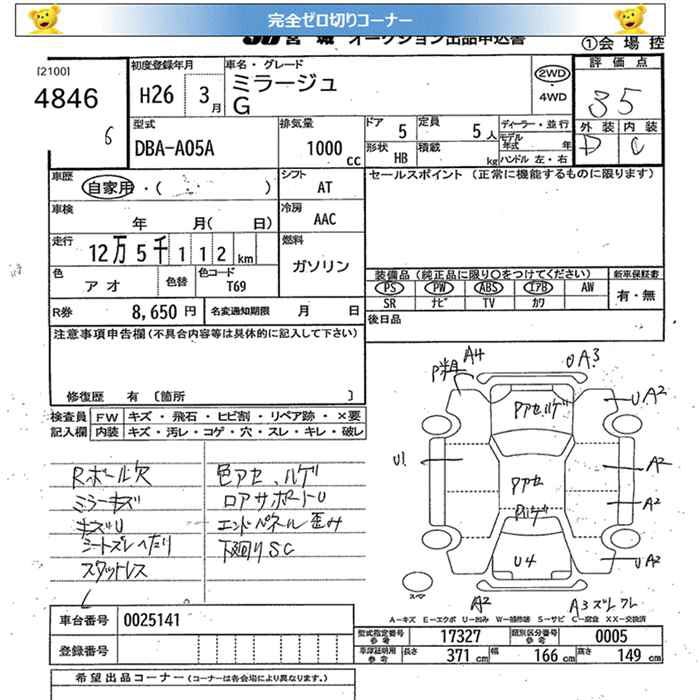 完全ゼロ切りコーナー
JU 宮城 オークション出品申込書
①会場控
[2100]
4846
6
初度登録年月
H26 3月
車名・グレード
ミラージュ
G
2WD
・
4WD
評価点
35
外装 内装
D C
型式
DBA-A05A
排気量
1000 cc
ドア 5
定員 5人
形状 HB
積載 kg
ディーラー・並行
モデル年式 年式
ハンドル 左・右
車歴
自家用・( )
シフト
AT
セールスポイント (正常に機能するものに限ります)
車検
年 月( 日)
冷房
AAC
走行
12万5千112km
燃料
ガソリン
色
アオ
色替
色コード
T69
装備品 (純正品に限り○をつけてください)
新車保証書
PS PW ABS エアB AW
SR ナビ TV カワ
有・無
R券 8,650円
名変通知期限 月 日
後日品
注意事項申告欄 (不具合内容等は具体的に記入して下さい)
修復歴 有 [箇所 ]
検査員
記入欄
FW キズ・飛石・ヒビ割・リペア跡・×要
内装 キズ・汚レ・コゲ・穴・スレ・キレ・破レ
Rボール欠
ミラーキズ
キズU
シートズレへたり
スタットレス
色アセ、ハゲ
ロアサポートU
エンドパネル歪み
下廻りSC
A4
UA3
UA2
Pアセハゲ
U1
A2
Pアセ
A2
Pハゲ
U4
UA2
スペア
A2
A3ズレワレ
A-キズ E-エクボ U-凹み W-補修跡 S-サビ C-腐食 XX-交換済
車台番号 0025141
登録番号
型式指定番号 参考 17327
類別区分番号 参考 0005
車庫証明用 参考 長さ 371cm 幅 166cm 高さ 149cm
希望出品コーナー (コーナーは各会場により異なります。)